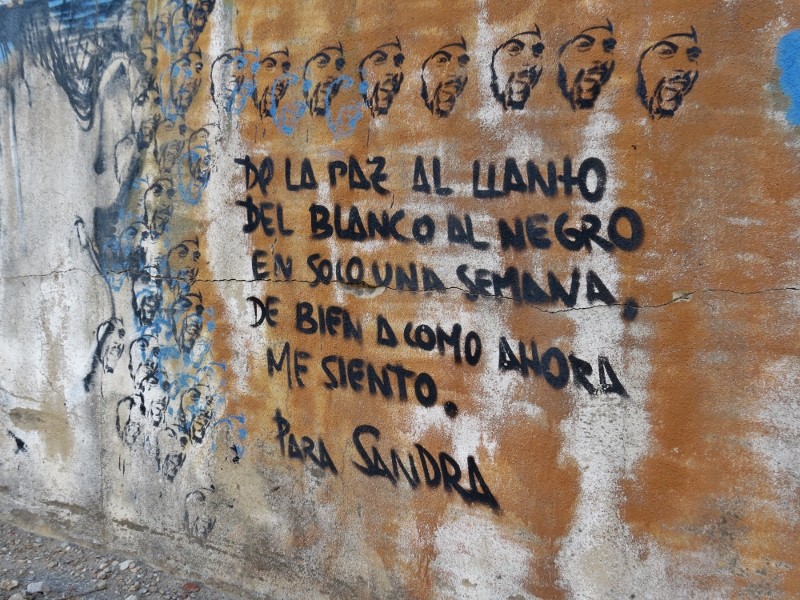 DE LA PAZ AL LLANTO
DEL BLANCO AL NEGRO
EN SOLO UNA SEMANA,
DE BIEN A COMO AHORA
ME SIENTO.
PARA SANDRA